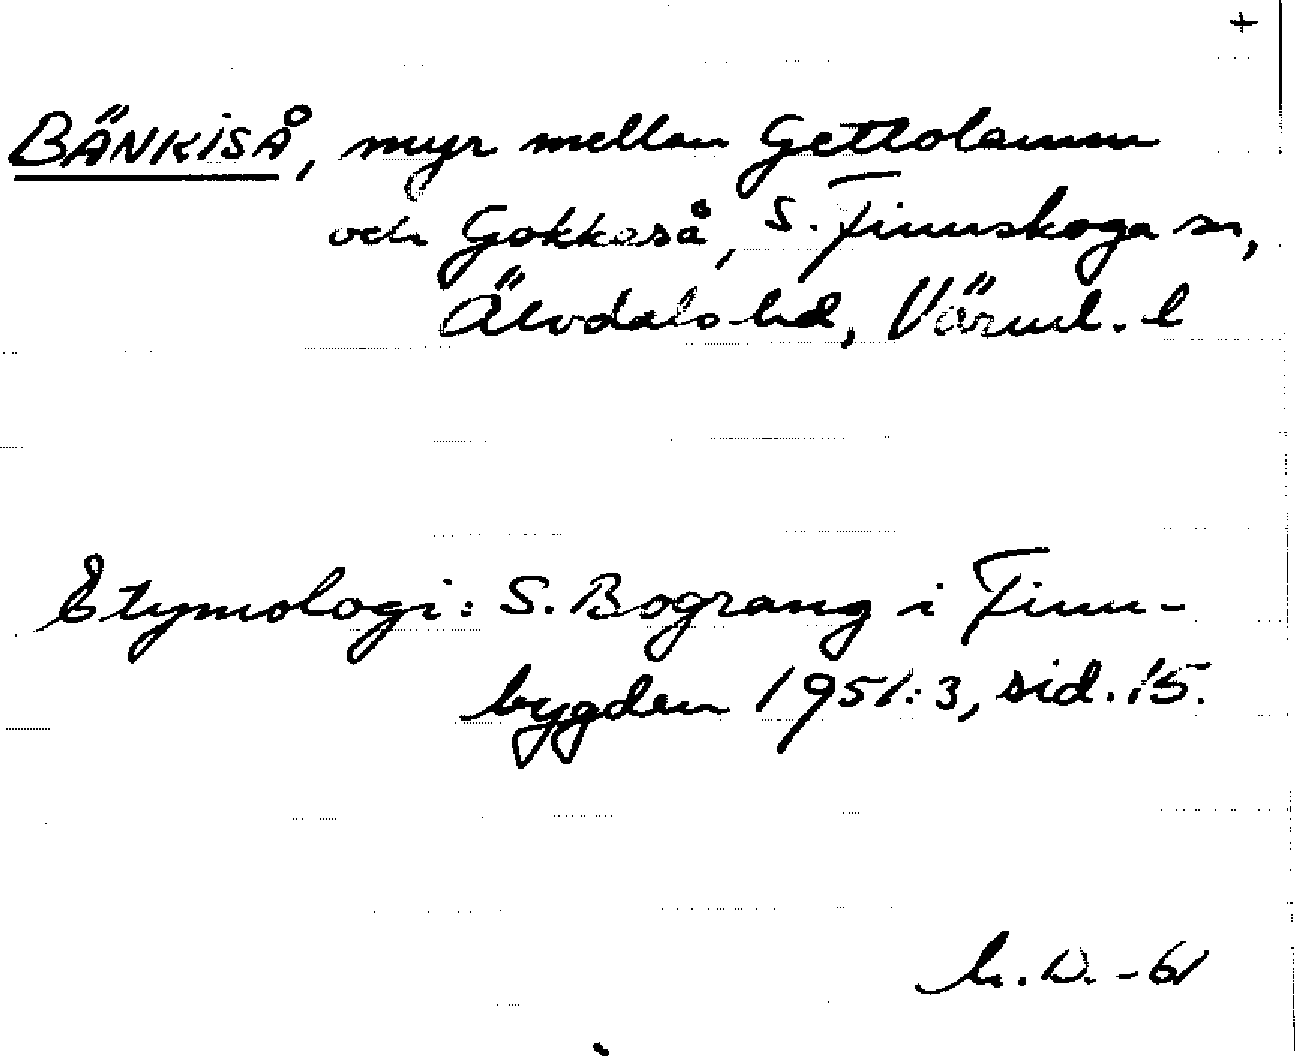 +
BÄNKISÅ, myr mellan Gettolamm
och Gokkaså, S. Finnskoga sn,
Älvdals hd, Värml. l
Etymologi: S. Bograng i Finn-
bygden 1951:3, sid. 15.
h. D. -61